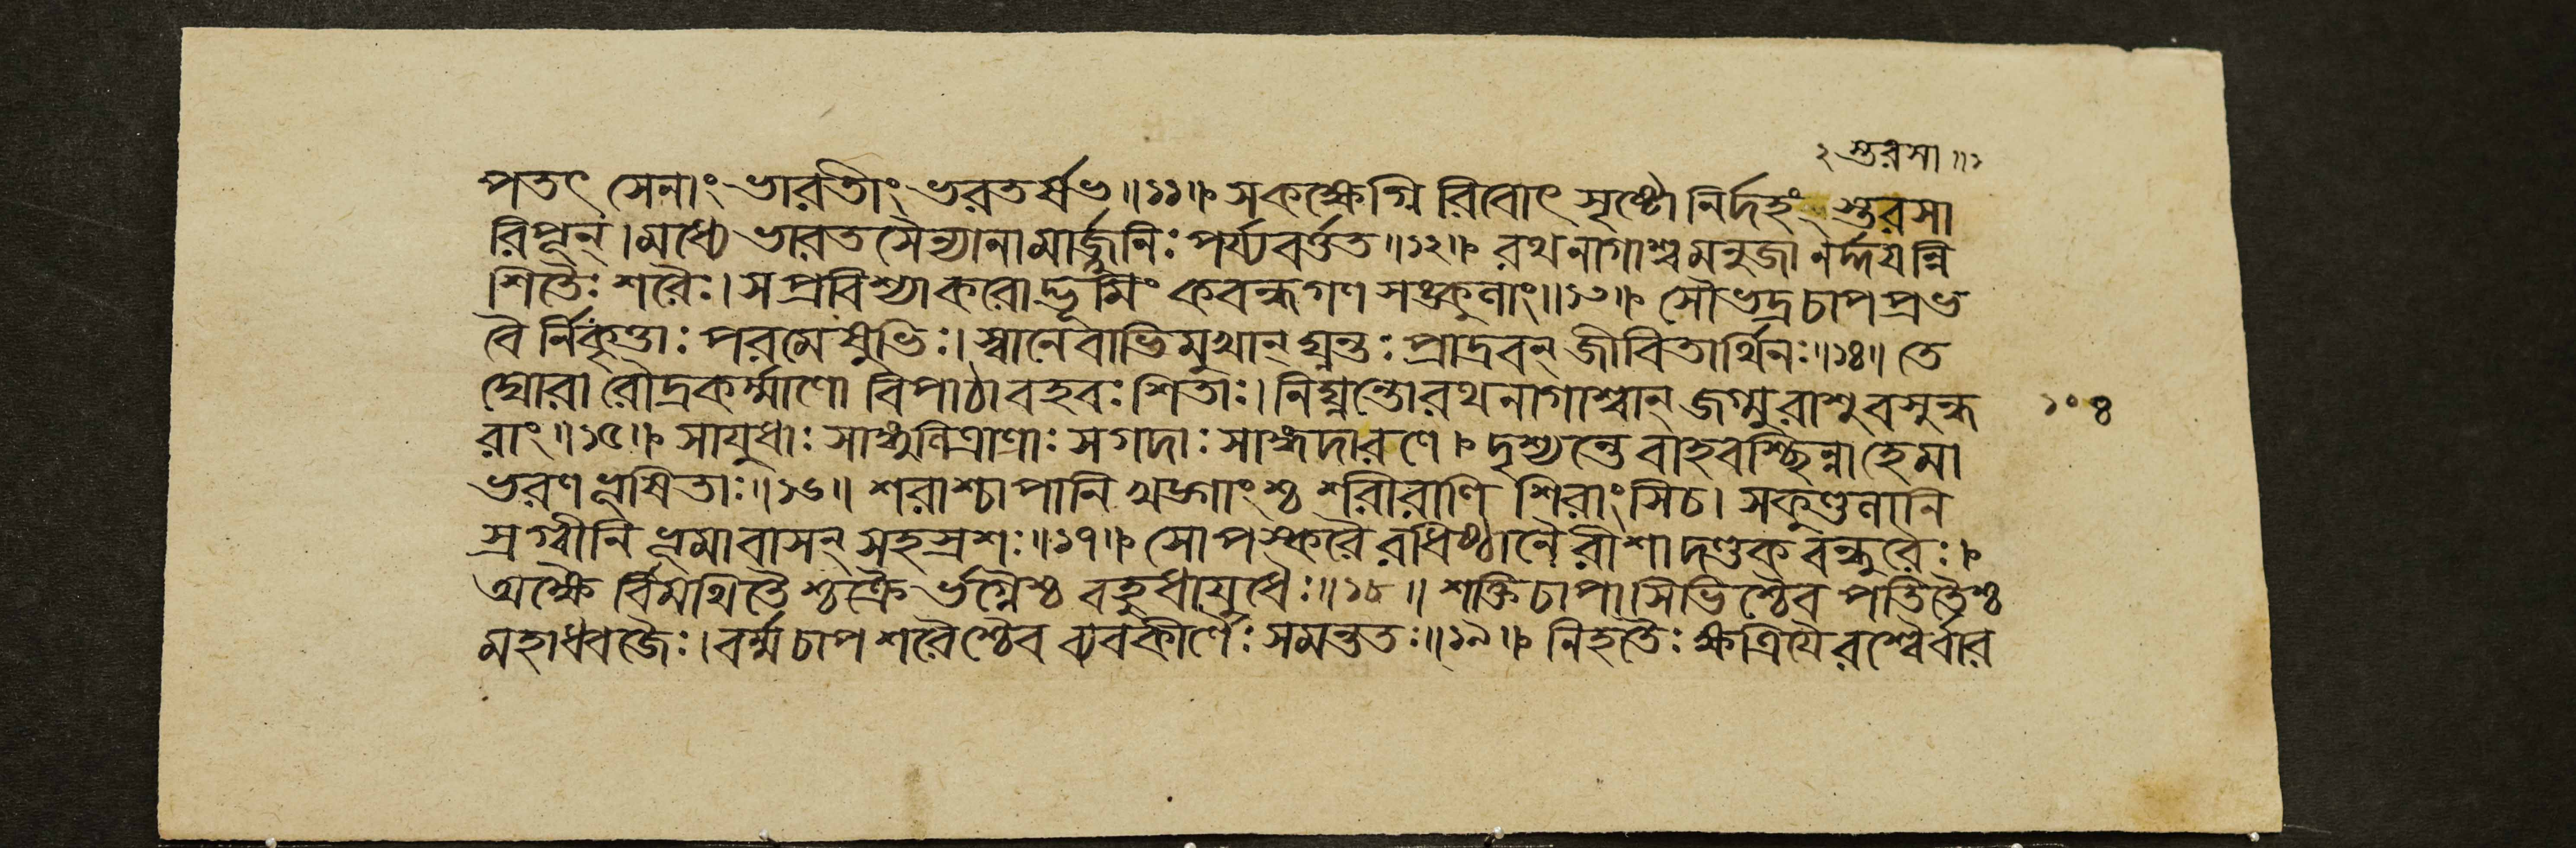 ২ স্তরসা ॥১
পতৎ সেনাং ভারতীং ভরতর্ষভ॥১১॥ সকক্ষেগ্নি রিবোৎ সৃষ্টো নির্দহং স্তরসা
রিপূন্।মধ্যে ভারত সৈন্যানামার্জ্জুনিঃ পর্য্যবর্ত্তত॥১২॥ রথনাগাশ্বমনুজানর্দ্দয়ন্নি
শিতৈঃ শরৈঃ।সপ্রবিশ্যাকরোদ্ভূমিং কবন্ধগণ সঙ্কুলাং॥১৩॥ সৌভদ্রচাপপ্রভ
বৈ র্নিকৃত্তাঃ পরমেষুভিঃ।স্বানেবাভিমুখান্ ঘ্নন্তঃ প্রাদ্রবন্ জীবিতার্থিনঃ॥১৪॥ তে
ঘোরা রৌদ্রকর্ম্মাণো বিপাঠা বহবঃ শিতাঃ।নিঘ্নন্তোরথনাগাশ্বান্ জগ্মুরাশুবসুন্ধ ১০৪
রাং॥১৫॥ সাযুধাঃ সাঙ্গুলিত্রাণাঃ সগদাঃ সাঙ্গদারণে। দৃশ্যন্তে বাহবশ্ছিন্নাহেমা
ভরণ ভূষিতাঃ॥১৬॥ শরাশ্চাপানি খড্গাংশ্চ শরীরাণি শিরাংসিচ। সকুণ্ডলানি
স্রগ্বীনি ভূমাবাসন্ সহস্রশঃ॥১৭॥ সোপস্করৈ রধিষ্ঠানৈ রীশাদণ্ডক বন্ধুরৈঃ।
অক্ষৈ র্বিমথিতৈ শ্চক্রৈ র্ভগ্নৈশ্চ বহুধাযুধৈঃ॥১৮॥ শক্তিচাপাসিভিশ্চৈব পতিতৈশ্চ
মহাধ্বজৈঃ।বর্ম্মচাপ শরৈশ্চৈব ব্যবকীর্ণৈঃ সমন্ততঃ॥১৯॥ নিহতৈঃ ক্ষত্রিয়ৈরশ্বৈর্বার